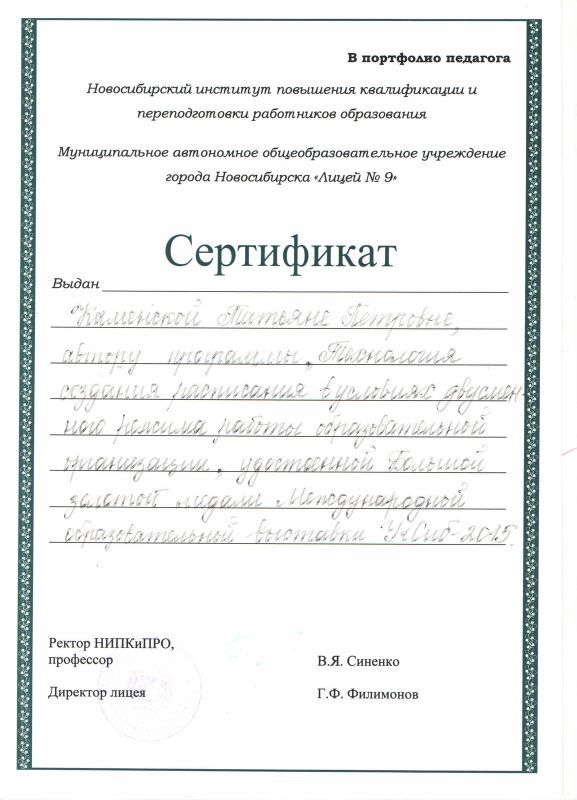 В портфолио педагога
Новосибирский институт повышения квалификации и
переподготовки работников образования
Муниципальное автономное общеобразовательное учреждение
города Новосибирска «Лицей № 9»
Сертификат
Выдан
Каменской Татьяне Петровне,
автору программы „Технология
создания расписания в условиях двусмен-
ного режима работы образовательной
организации", удостоенной Большой
золотой медали Международной
образовательной выставки УчСиб-2015.
Ректор НИПКиПРО,
профессор В.Я. Синенко
Директор лицея Г.Ф. Филимонов